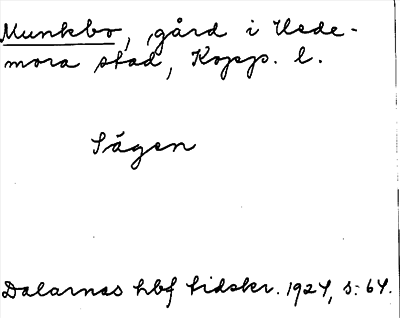 Munkbo, gård i Hede-
mora stad, Kopp. l.
Sägen
Dalarnas hbf tidskr. 1924, s: 64.